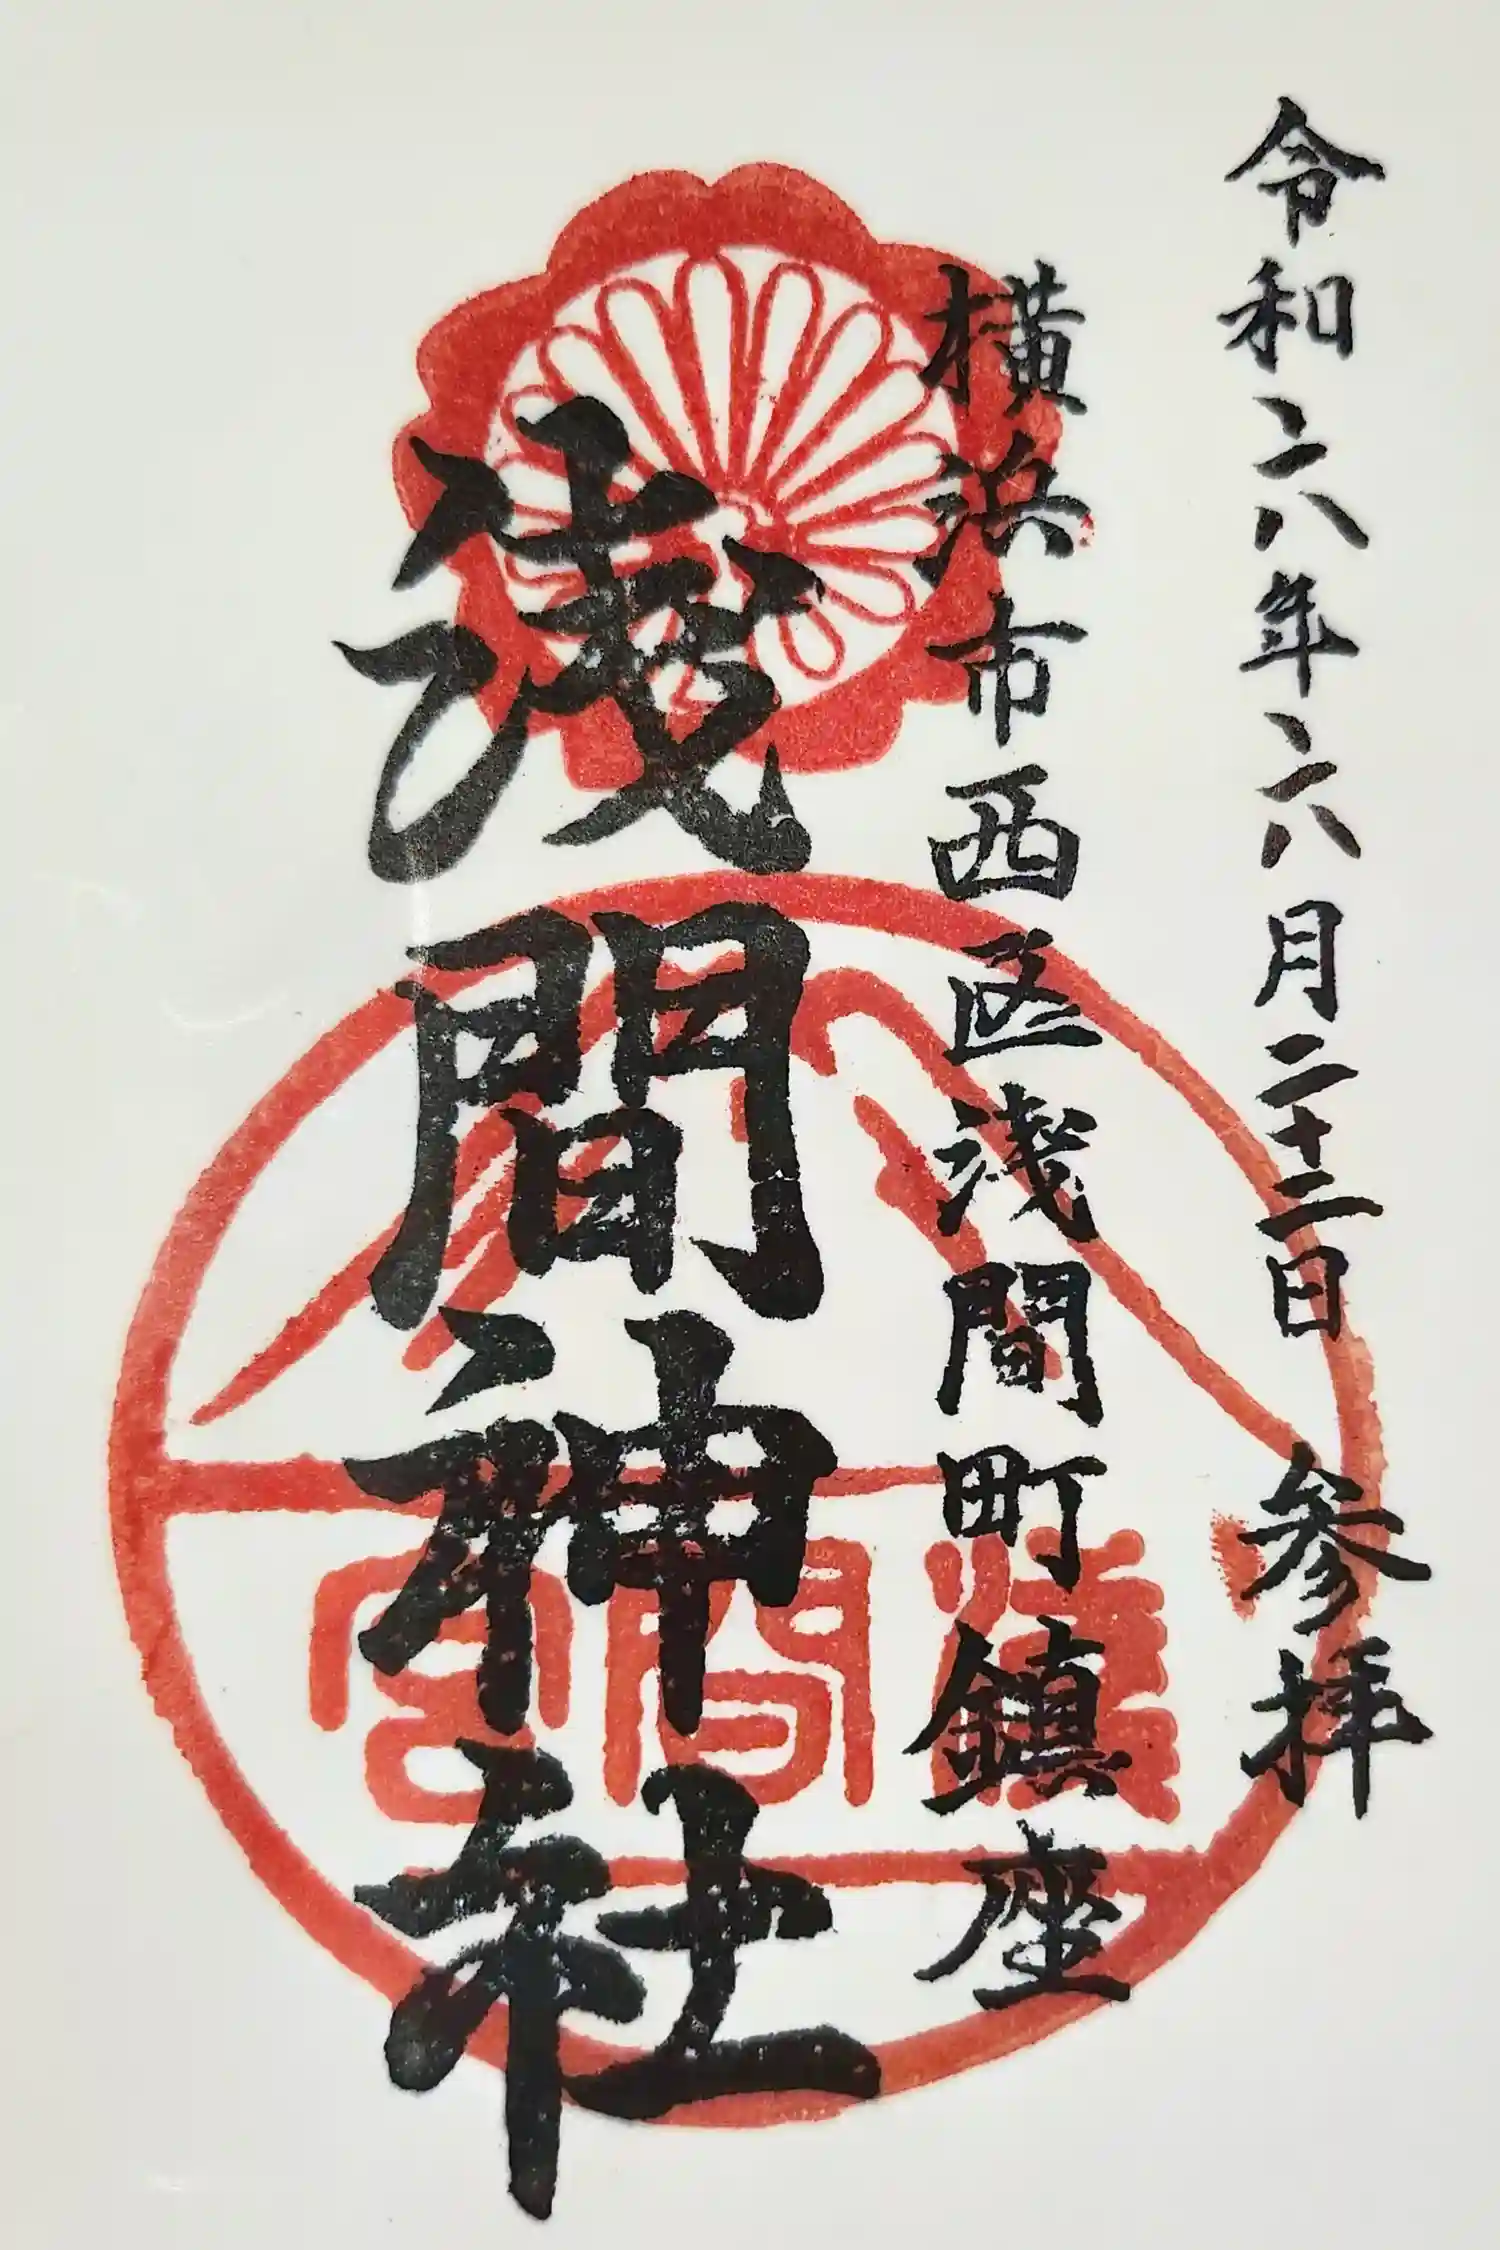 令和六年六月二十二日 参拝
横浜市西区浅間町鎮座
浅間神社
淺間宮